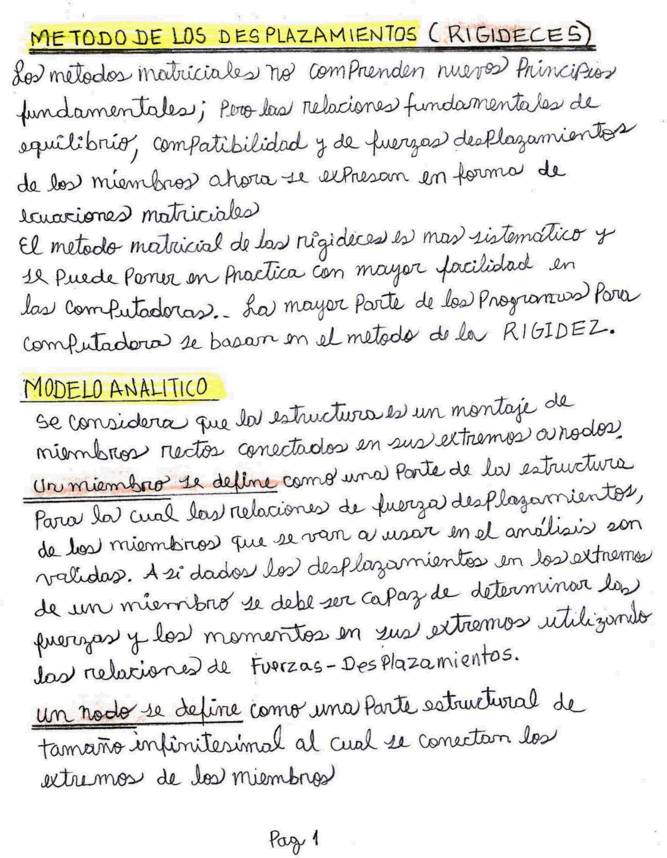 METODO DE LOS DESPLAZAMIENTOS (RIGIDECES)
Los metodos matriciales no comprenden nuevos Principios
fundamentales; Pero las relaciones fundamentales de
equilibrio, compatibilidad y de fuerzas desplazamientos
de los miembros ahora se expresan en forma de
ecuaciones matriciales
El metodo matricial de las rigideces es mas sistemático y
se Puede Poner en Practica con mayor facilidad en
las Computadoras.. La mayor Parte de los Programas Para
Computadora se basan en el metodo de la RIGIDEZ.
MODELO ANALITICO
Se considera que la estructura es un montaje de
miembros rectos conectados en sus extremos a nodos.
Un miembro se define como una Parte de la estructura
Para la cual las relaciones de fuerza desplazamientos,
de los miembros que se van a usar en el análisis son
validas. Asi dados los desplazamientos en los extremos
de un miembro se debe ser capaz de determinar las
fuerzas y los momentos en sus extremos utilizando
las relaciones de Fuerzas-Desplazamientos.
Un nodo se define como una Parte estructural de
tamaño infinitesimal al cual se conectan los
extremos de los miembros
Pag 1